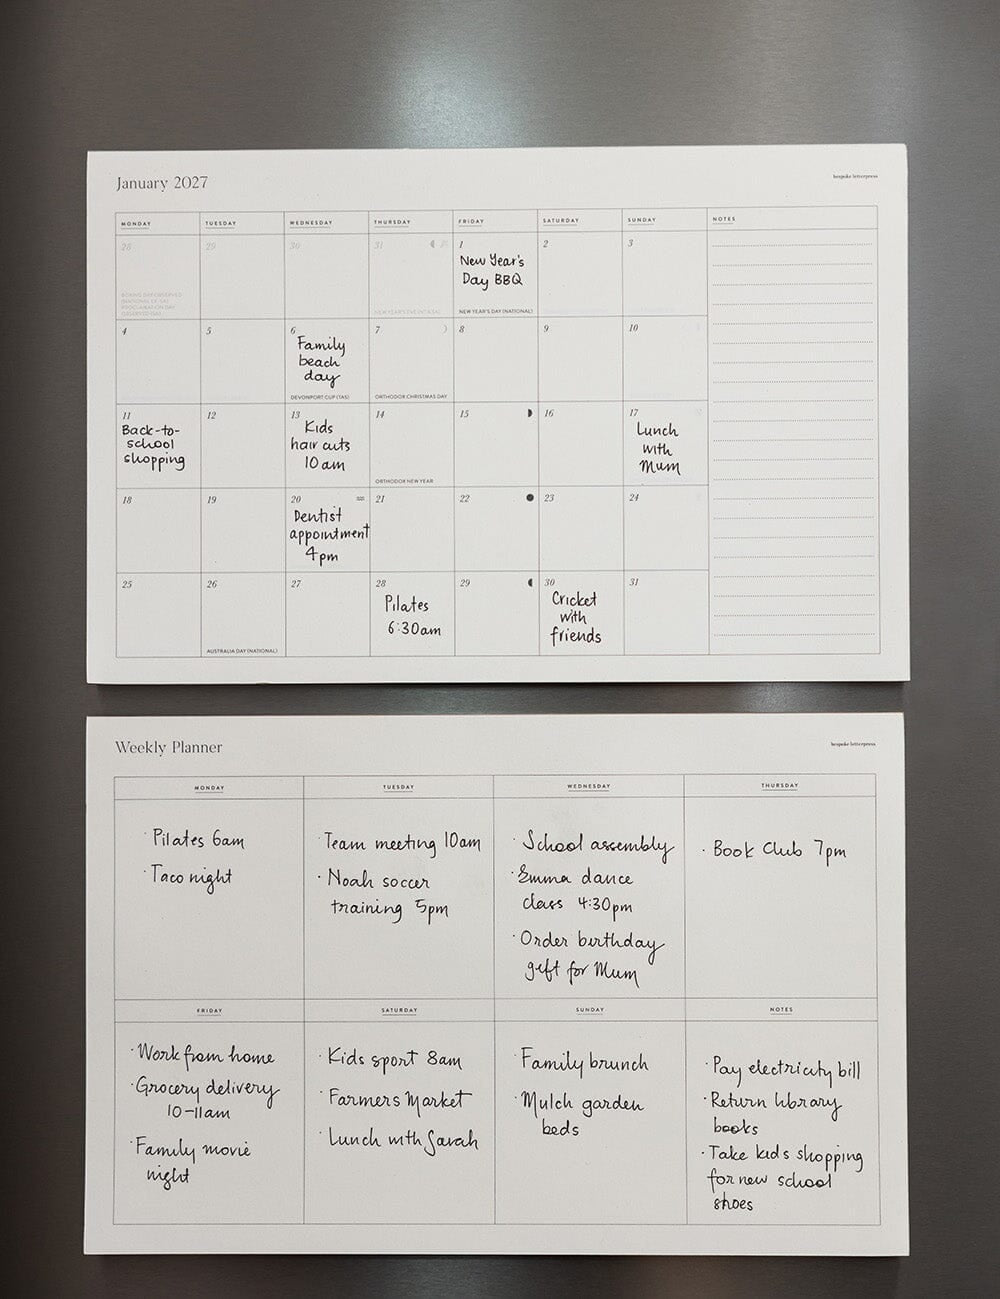 January 2027
bespoke letterpress
MONDAY TUESDAY WEDNESDAY THURSDAY FRIDAY SATURDAY SUNDAY NOTES
28 29 30 31 1 2 3
New Year's
Day BBQ
BOXING DAY OBSERVED
PROCLAMATION DAY
NEW YEAR'S DAY (NATIONAL)
4 5 6 7 8 9 10
Family
beach
day
DEVONPORT CUP (TAS)
ORTHODOX CHRISTMAS DAY
11 12 13 14 15 16 17
Back-to-
school
shopping
Kids
hair cuts
10am
ORTHODOX NEW YEAR
Lunch
with
Mum
18 19 20 21 22 23 24
Dentist
appointment
4pm
25 26 27 28 29 30 31
AUSTRALIA DAY (NATIONAL)
Pilates
6:30am
Cricket
with
friends
Weekly Planner
bespoke letterpress
MONDAY TUESDAY WEDNESDAY THURSDAY
· Pilates 6am
· Taco night
· Team meeting 10am
· Noah soccer
training 5pm
· School assembly
· Emma dance
class 4:30pm
· Order birthday
gift for Mum
· Book Club 7pm
FRIDAY SATURDAY SUNDAY NOTES
· Work from home
· Grocery delivery
10-11am
· Family movie
night
· Kids sport 8am
· Farmers Market
· Lunch with Sarah
· Family brunch
· Mulch garden
beds
· Pay electricity bill
· Return library
books
· Take kids shopping
for new school
shoes